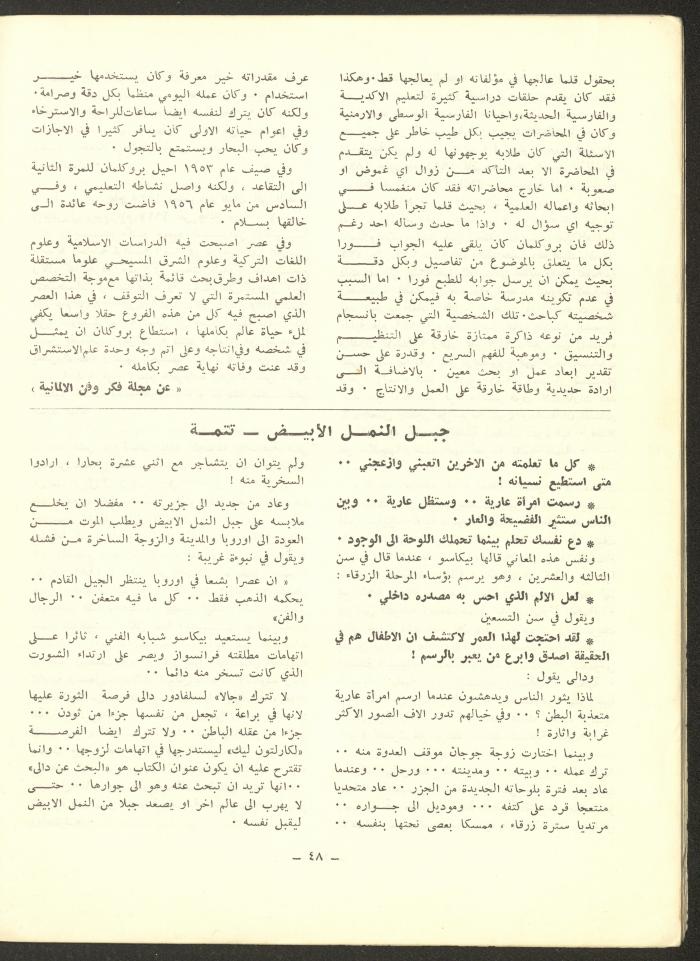 بحقول قلما عالجها في مؤلفاته او لم يعالجها قط٠وهكذا
فقد كان يقدم حلقات دراسية كثيرة لتعليم الاكدية
والفارسية الحديثة،واحيانا الفارسية الوسطى والارمنية
وكان في المحاضرات يجيب بكل طيب خاطر على جميع
الاسئلة التي كان طلابه يوجهونها له ولم يكن يتقدم
في المحاضرة الا بعد التأكد من زوال اي غموض او
صعوبة ٠ اما خارج محاضراته فقد كان منغمسا في
ابحاثه واعماله العلمية ، بحيث قلما تجرأ طلابه على
توجيه اي سؤال له ٠ واذا ما حدث وسأله احد رغم
ذلك فان بروكلمان كان يلقى عليه الجواب فورا
بكل ما يتعلق بالموضوع من تفاصيل وبكل دقة
بحيث يمكن ان يرسل جوابه للطبع فورا ٠ اما السبب
في عدم تكوينه مدرسة خاصة به فيمكن في طبيعة
شخصيته كباحث٠ تلك الشخصية التي جمعت بانسجام
فريد من نوعه ذاكرة ممتازة خارقة على التنظيم
والتنسيق ٠ وموهبة للفهم السريع ٠ وقدرة على حسن
تقدير ابعاد عمل او بحث معين ٠ بالاضافة الى
ارادة حديدية وطاقة خارقة على العمل والانتاج ٠ وقد
عرف مقدراته خير معرفة وكان يستخدمها خير
استخدام ٠ وكان عمله اليومي منظما بكل دقة وصرامة٠
ولكنه كان يترك لنفسه ايضا ساعات للراحة والاسترخاء
وفي اعوام حياته الاولى كان يسافر كثيرا في الاجازات
وكان يحب البحار ويستمتع بالتجول ٠
وفي صيف عام ١٩٥٣ احيل بروكلمان للمرة الثانية
الى التقاعد ، ولكنه واصل نشاطه التعليمي ، وفي
السادس من مايو عام ١٩٥٦ فاضت روحه عائدة الى
خالقها بسلام ٠
وفي عصر اصبحت فيه الدراسات الاسلامية وعلوم
اللغات التركية وعلوم الشرق المسيحي علوما مستقلة
ذات اهداف وطرق بحث قائمة بذاتها مع موجة التخصص
العلمي المستمرة التي لا تعرف التوقف ، في هذا العصر
الذي اصبح فيه كل من هذه الفروع حقلا واسعا يكفي
لملء حياة عالم بكاملها ، استطاع بروكلان ان يمثل
في شخصه وفي انتاجه وعلى اتم وجه وحدة علم الاستشراق
وقد عنت وفاته نهاية عصر بكامله ٠
« عن مجلة فكر وفن الالمانية »
جبل النمل الأبيض – تتمة
* كل ما تعلمته من الاخرين اتعبني وازعجني ٠٠
متى استطيع نسيانه !
* رسمت امرأة عارية ٠٠ وستظل عارية ٠٠ وبين
الناس ستثير الفضيحة والعار ٠
* دع نفسك تحلم بينما تحملك اللوحة الى الوجود ٠
ونفس هذه المعاني قالها بيكاسو ، عندما قال في سن
الثالثه والعشرين ، وهو يرسم بؤساء المرحلة الزرقاء :
* لعل الالم الذي احس به مصدره داخلي ٠
ويقول في سن التسعين
* لقد احتجت لهذا العمر لاكتشف ان الاطفال هم في
الحقيقة اصدق وابرع من يعبر بالرسم !
ودالى يقول :
لماذا يثور الناس ويدهشون عندما ارسم امرأة عارية
متعذبة البطن ؟ ٠٠ وفي خيالهم تدور الاف الصور الاكثر
غرابة واثارة !
وبينما اختارت زوجة جوجان موقف العدوة منه ٠٠
ترك عمله ٠٠ وبيته ٠٠ ومدينته ٠٠٠ ورحل ٠٠ وعندما
عاد بعد فترة بلوحاته الجديدة من الجزر ٠٠ عاد متحديا
منتعجا قرد على كتفه ٠٠٠ وموديل الى جواره ٠٠
مرتديا سترة زرقاء ، ممسكا بعصى نحتها بنفسه ٠٠
ولم يتوان ان يتشاجر مع اثني عشرة بحارا ، ارادوا
السخرية منه !
وعاد من جديد الى جزيرته ٠٠ مفضلا ان يخلع
ملابسه على جبل النمل الابيض ويطلب الموت من
العودة الى اوروبا والمدينة والزوجة الساخرة من فشله
ويقول في نبوءة غريبة :
« ان عصرا بشعا في اوروبا ينتظر الجيل القادم ٠٠
يحكمه الذهب فقط ٠٠ كل ما فيه متعفن ٠٠ الرجال
والفن»
وبينما يستعيد بيكاسو شبابه الفني ، ثائرا على
اتهامات مطلقته فرانسواز ويصر على ارتداء الشورت
الذي كانت تسخر منه دائما ٠٠
لا تترك «جالا» لسلفادور دالى فرصة الثورة عليها
لانها في براعة ، تجعل من نفسها جزءا من ثودن ٠٠٠
جزءا من عقله الباطن ٠٠ ولا تترك ايضا الفرصة
«لكارلتون ليك» ليستدرجها في اتهامات لزوجها ٠٠ وانما
تقترح عليه ان يكون عنوان الكتاب هو «البحث عن دالى»
٠٠انها تريد ان تبحث عنه وهو الى جوارها ٠٠ حتى
لا يهرب الى عالم اخر او يصعد جبلا من النمل الابيض
ليقبل نفسه ٠
– ٤٨ –